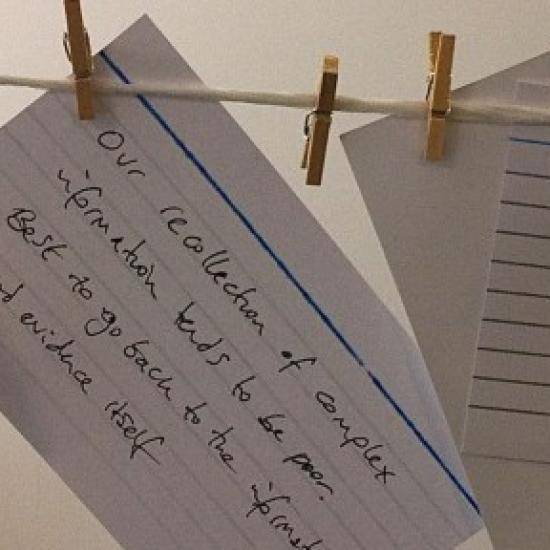 Our recollection of complex
information tends to be poor.
Best to go back to the
evidence itself